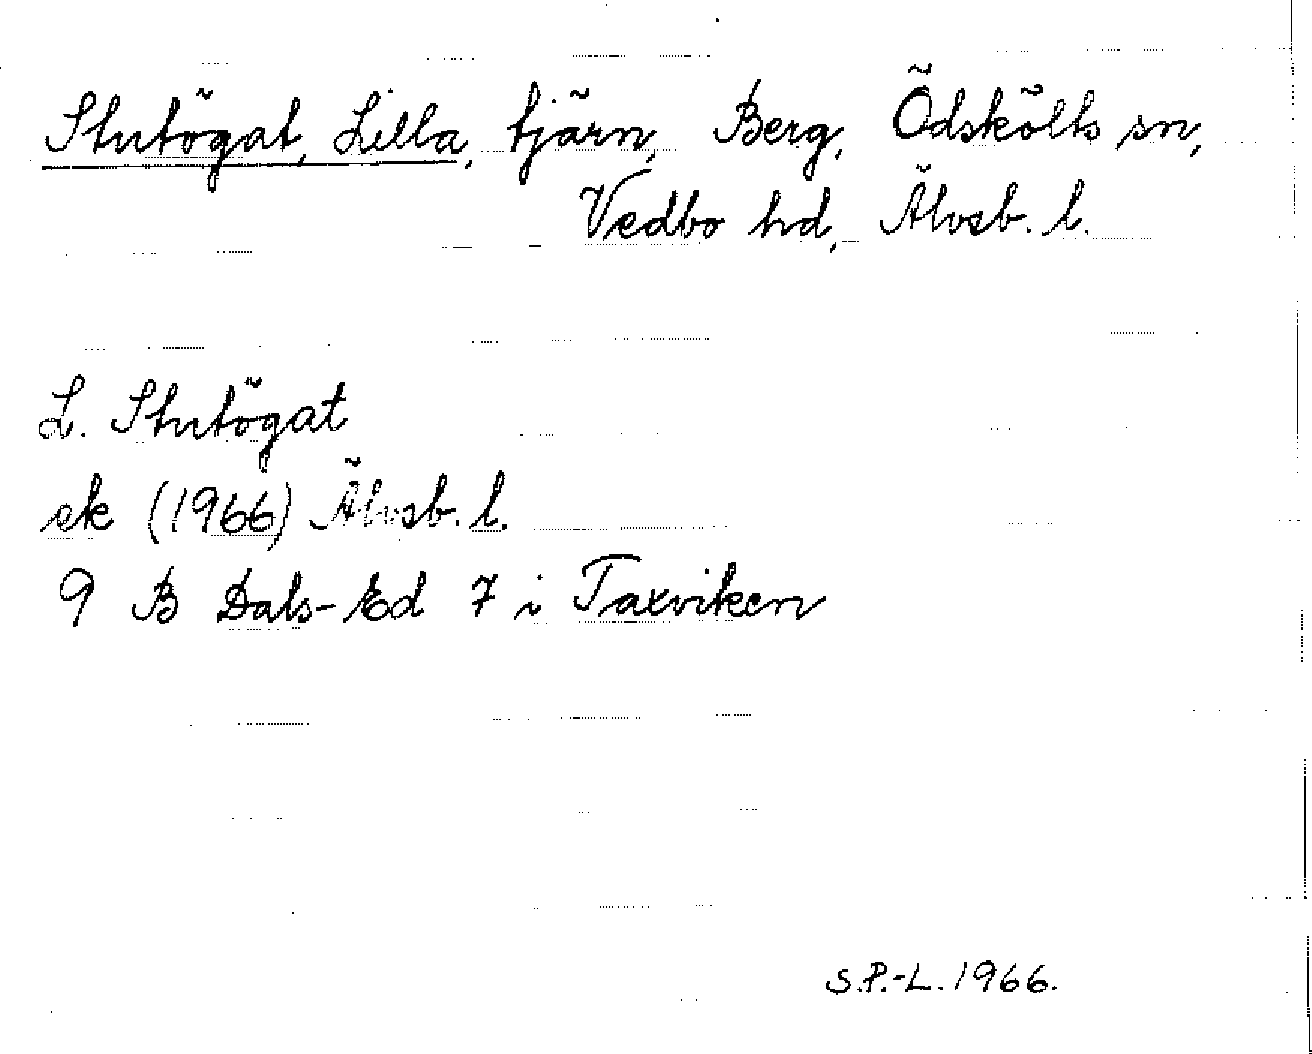 Stutögat, Lilla, tjärn, Berg, Ödskölts sn,
Vedbo hd, Älvsb. l.
L. Stutögat
ek (1966) Älvsb. l.
9 B Dals-Ed 7 i Taxviken
S.P.-L. 1966.